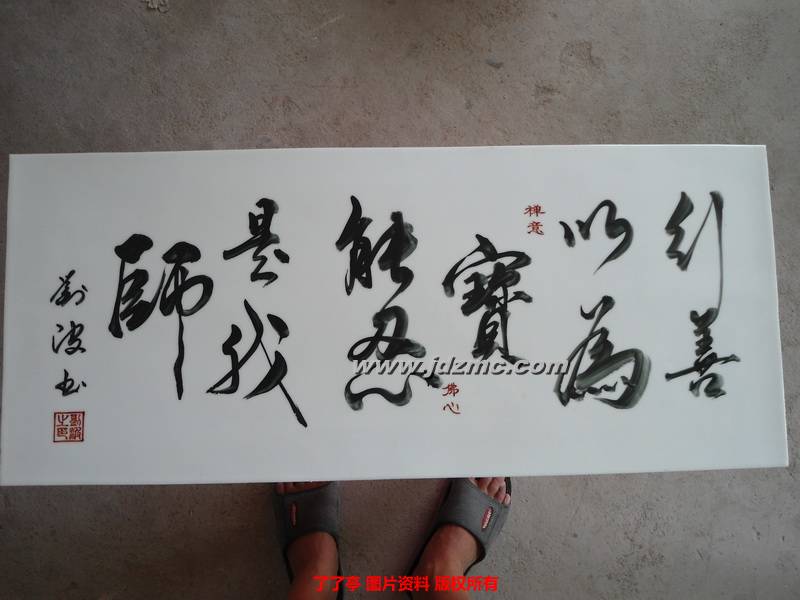 行善
以為
禅意
寶
佛心
能忍
是我
師
劉波书
劉波之印
www.jdzmc.com
了了亭 图片资料 版权所有